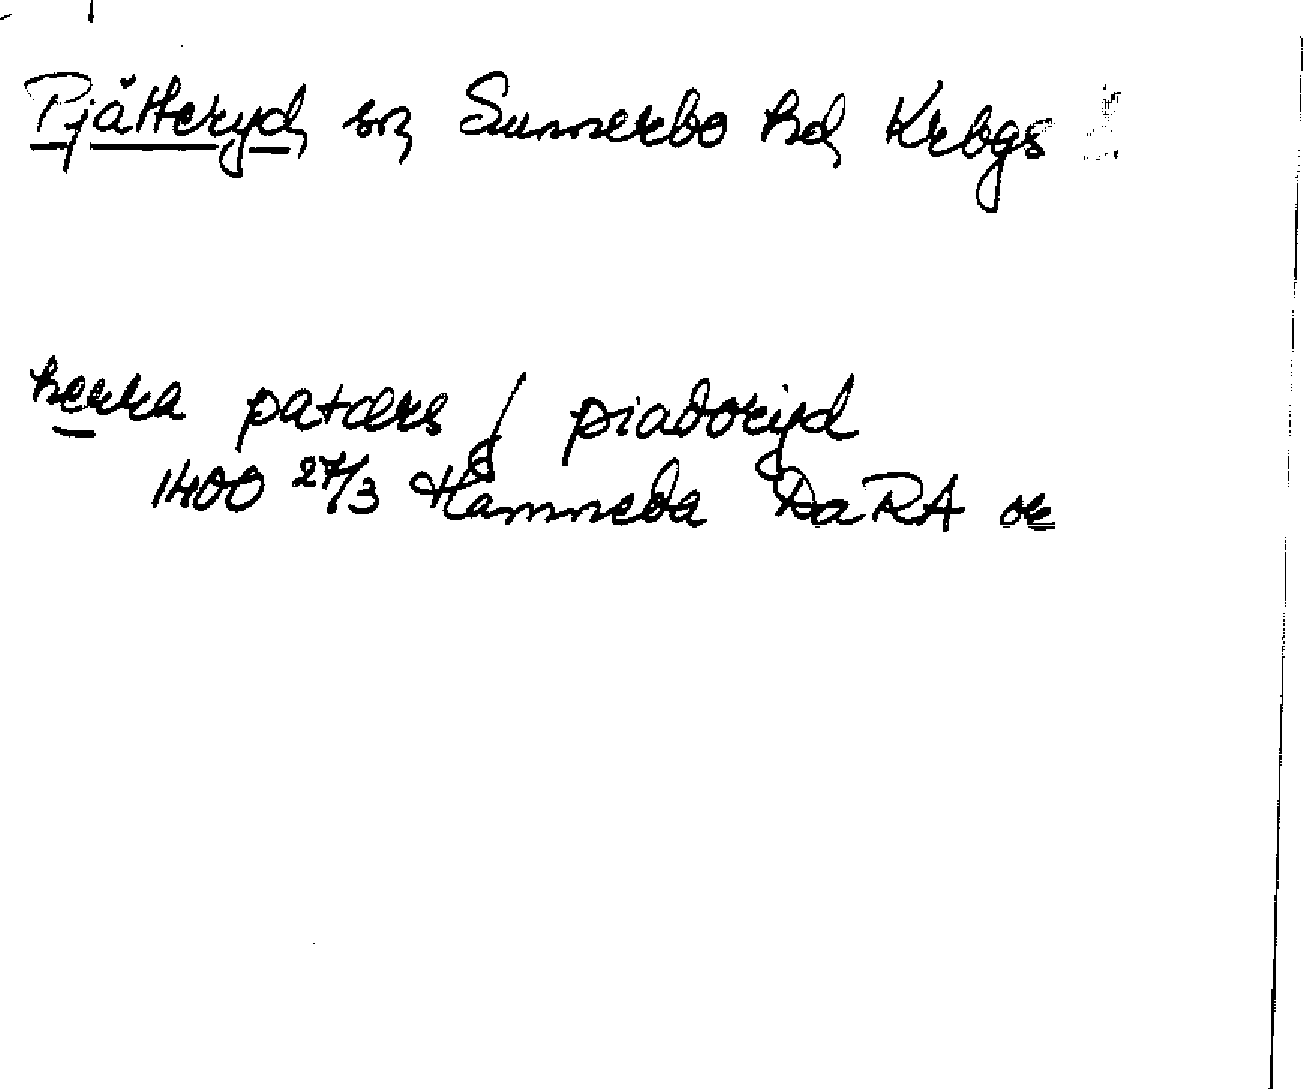 Pjätteryd sn Sunnerbo hd Krbgs l
herra pætærs j piadoryd
1400 27/3 Hamneda DaRA or